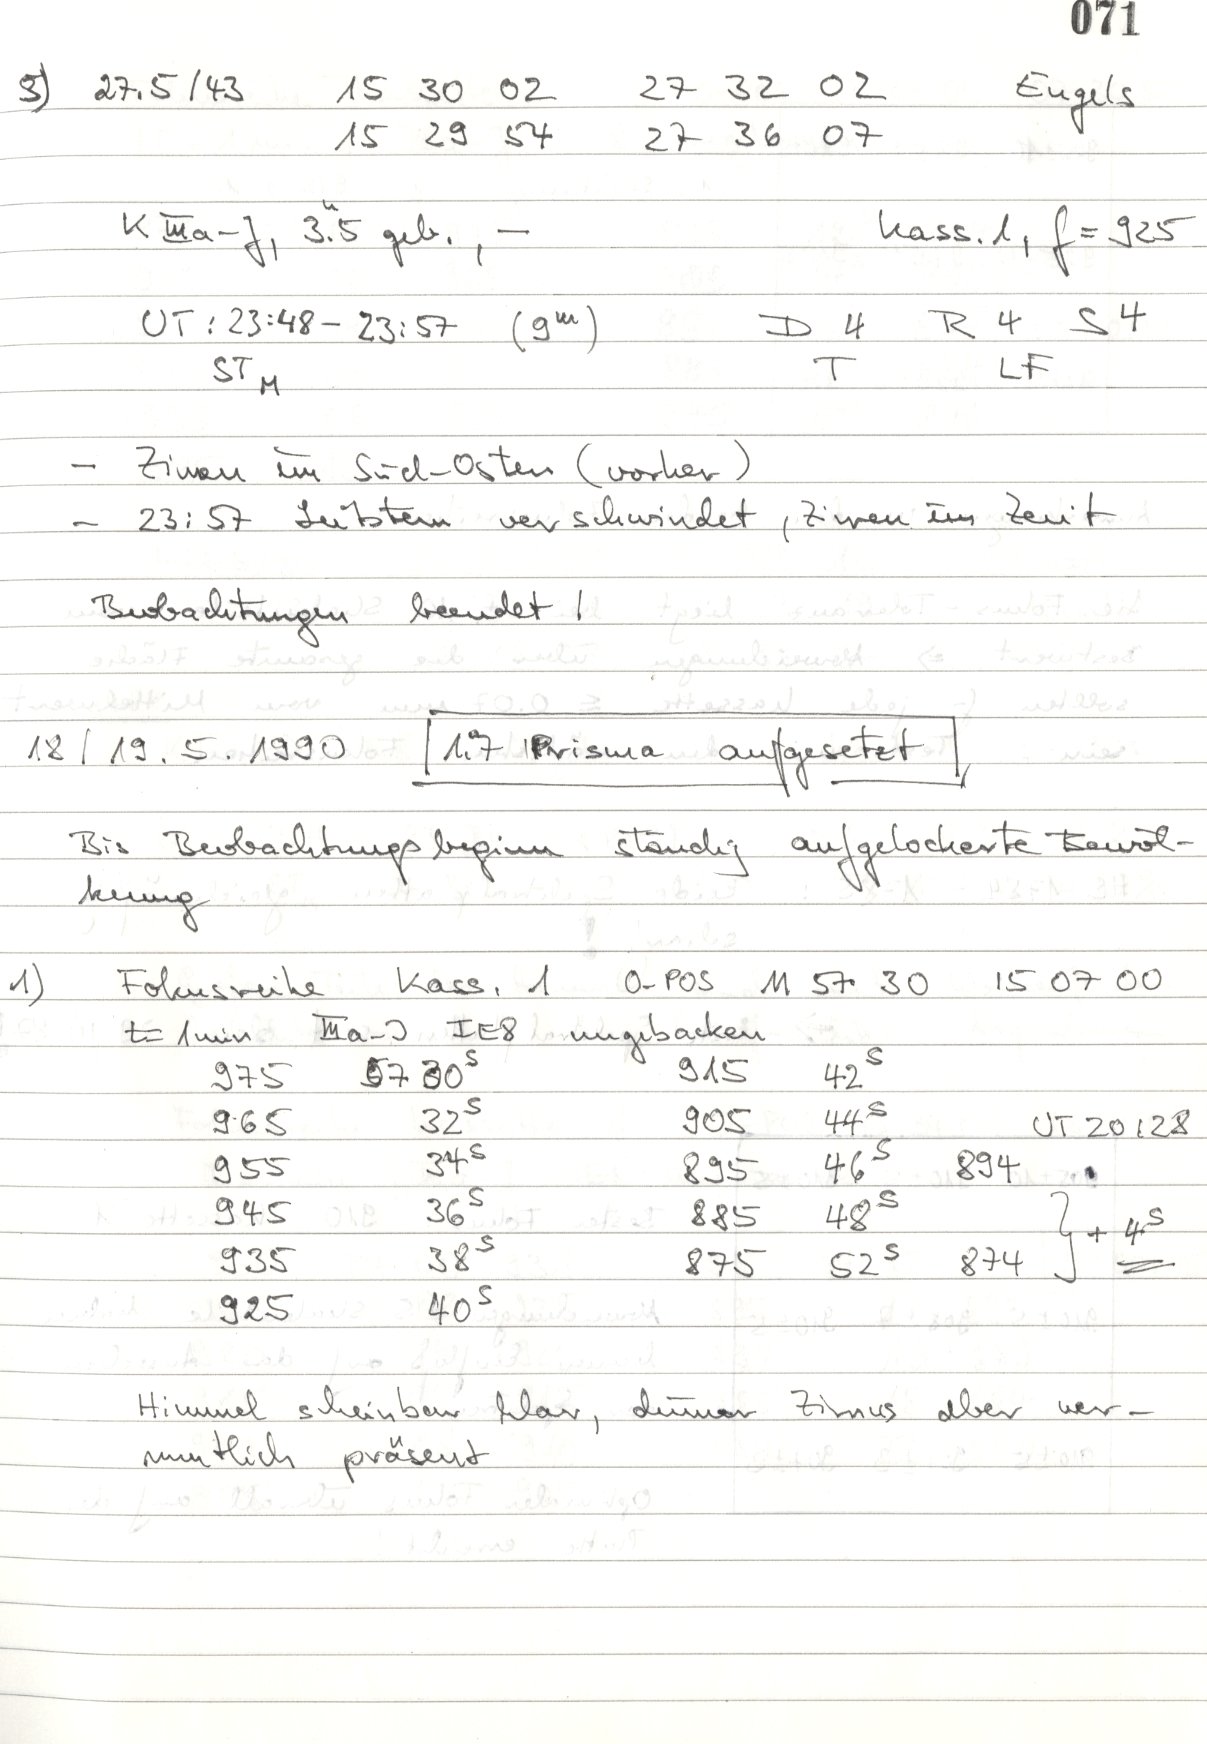 071
3) 27.5/43 15 30 02 27 32 02 Engels
15 29 54 27 36 07
K IIIa-J, 3.5ʰ geb., – Kass. 1, f = 925
UT: 23:48 – 23:57 (9ᵐ) D 4 R 4 S 4
ST M T LF
– Zirren im Süd-Osten (vorher)
– 23:57 Leitstern verschwindet, Zirren im Zenit
Beobachtungen beendet!
18/19.5.1990 1.7 Prisma aufgesetzt
Bis Beobachtungsbeginn ständig aufgelockerte Bewöl-
kung
1) Fokusreihe Kass. 1 0-POS 11 57 30 15 07 00
t = 1min IIIa-J IE8 ungebacken
975 57 30ˢ 915 42ˢ
965 32ˢ 905 44ˢ UT 20:28
955 34ˢ 895 46ˢ 894
945 36ˢ 885 48ˢ } + 4ˢ
935 38ˢ 875 52ˢ 874
925 40ˢ
Himmel scheinbar klar, dünner Zirrus aber ver-
mutlich präsent